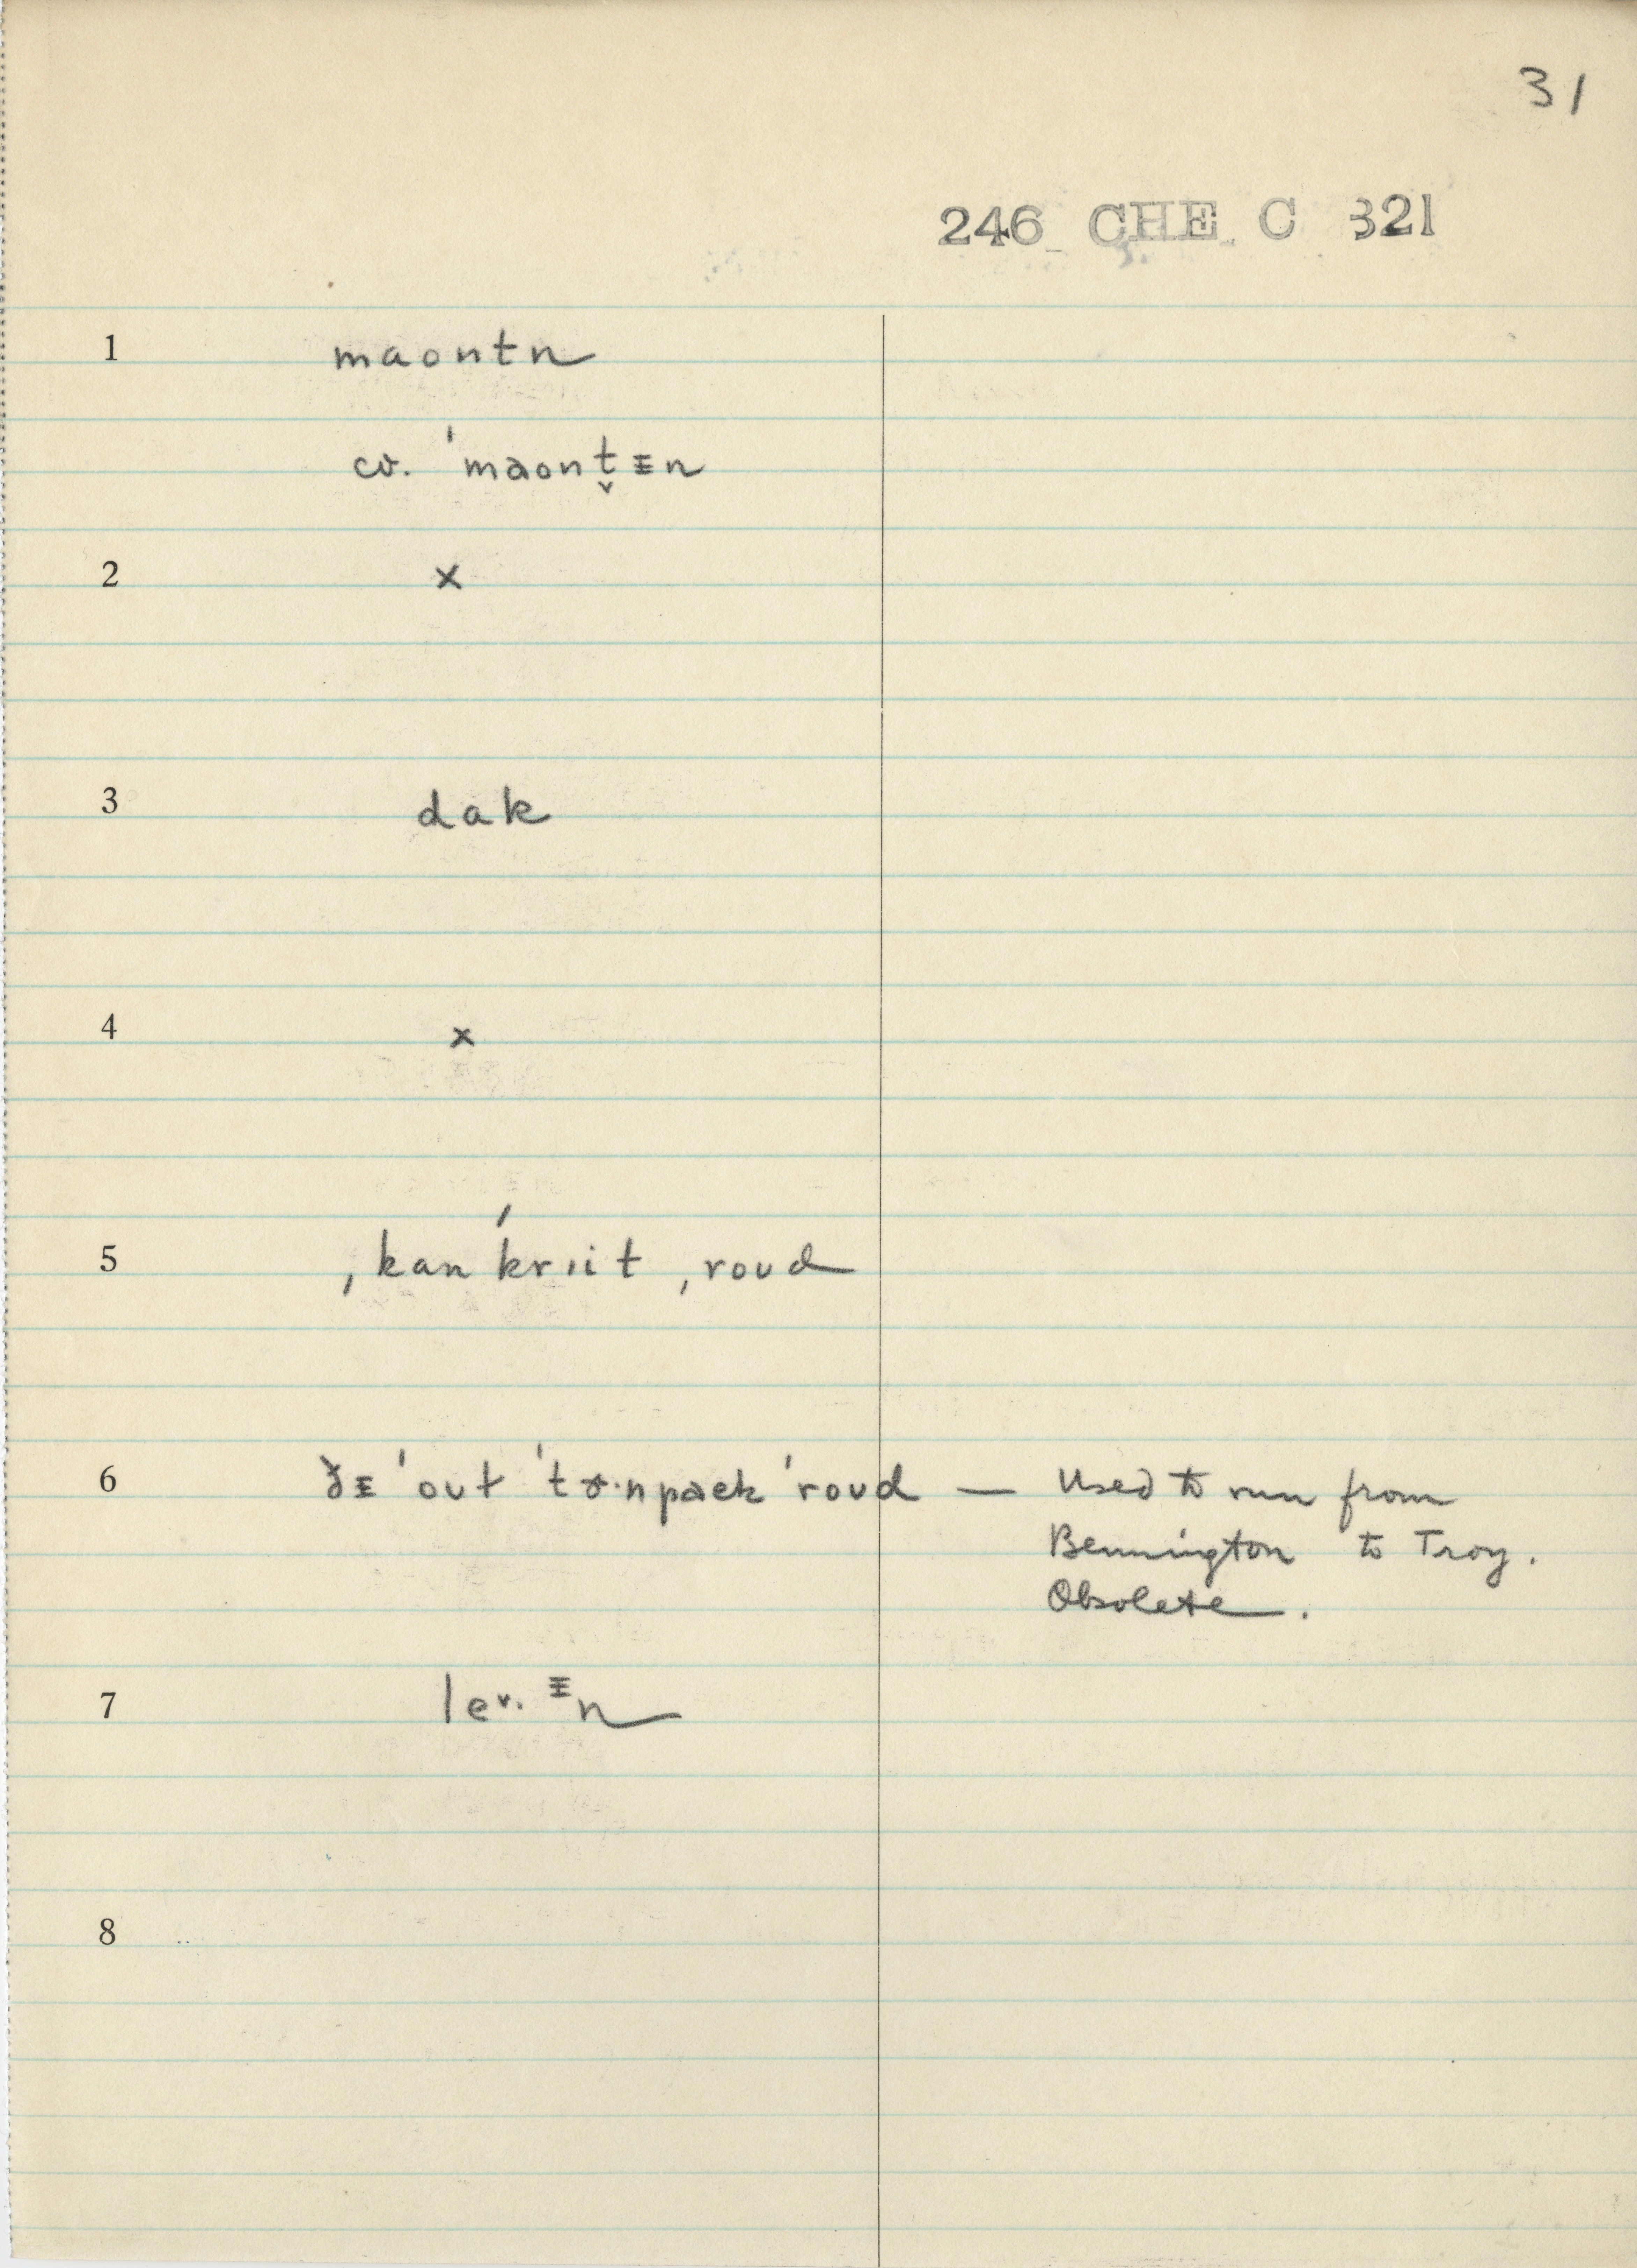 31
246 CHE C 321
1 maontn
cv. ˈmaont̬ᵻn
2 x
3 dak
4 x
5 ˌkanˈkriit ˌroud
6 ðᵻ ˈout ˈtɚ·npaɛk ˈroud — Used to run from
Bennington to Troy.
Obsolete.
7 leᵛ·ᵻn
8